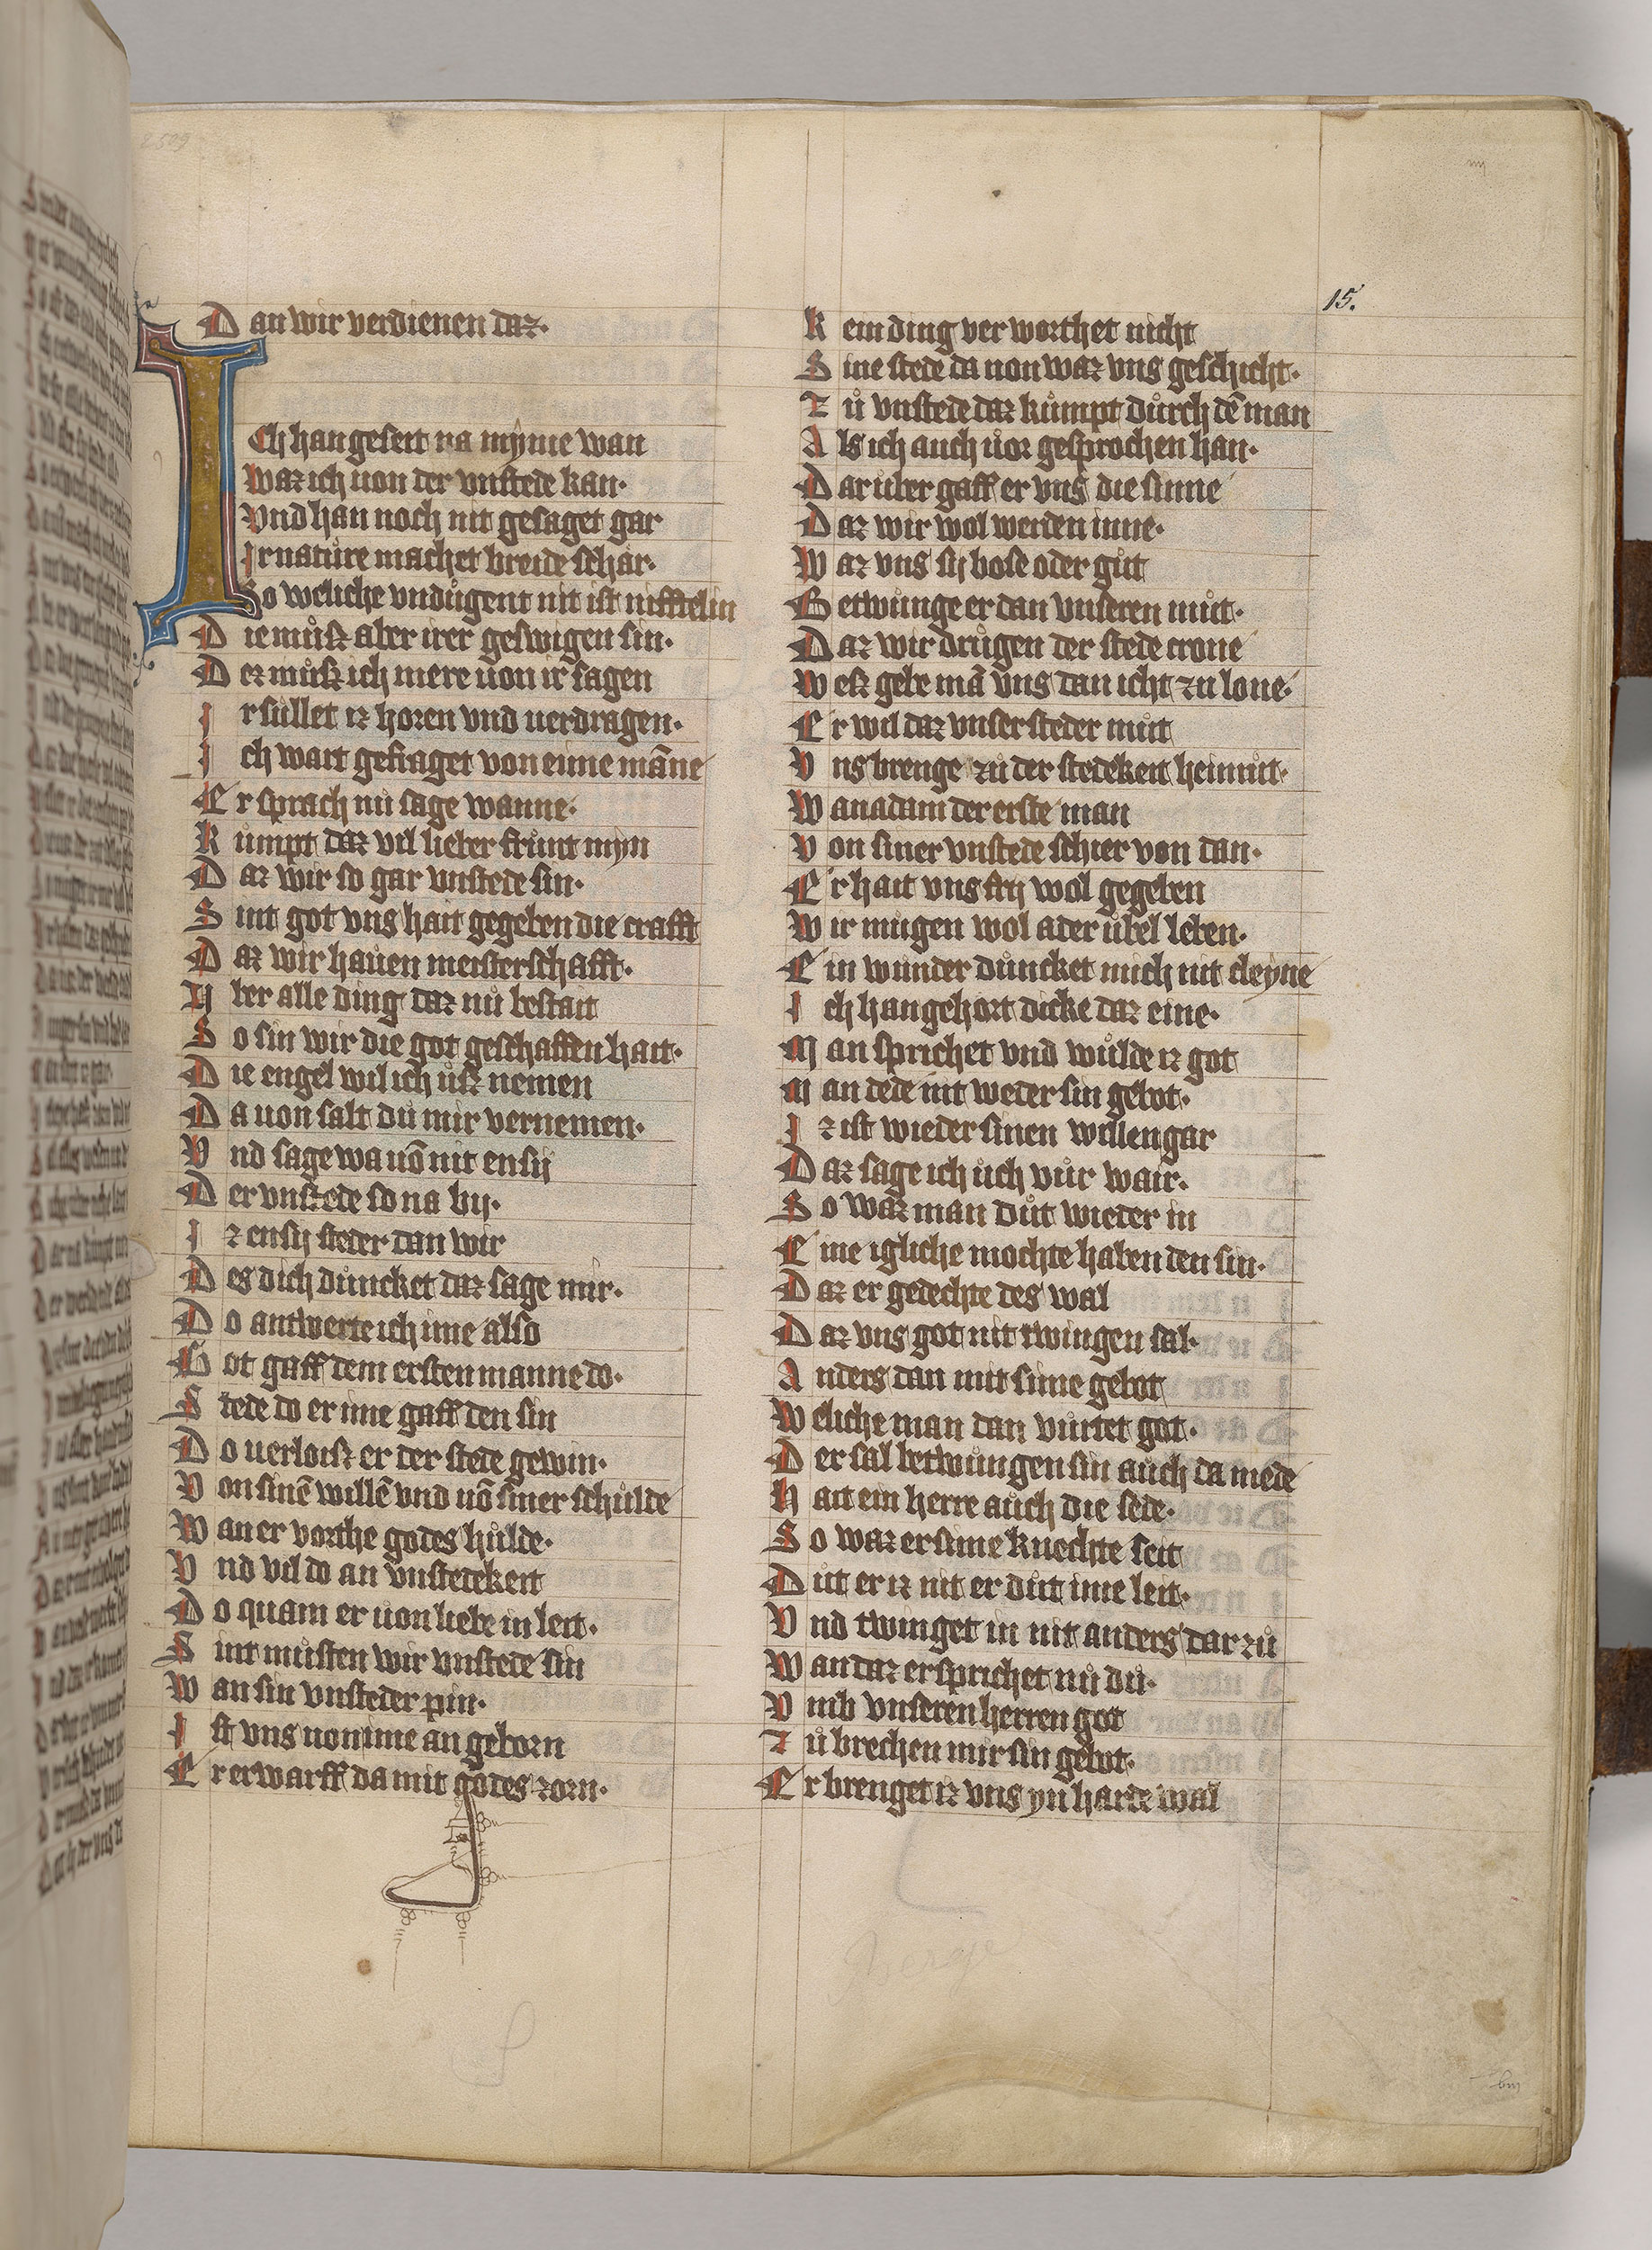 Dan wir verdienen daz·
Ich han geseit na myme wan
Waz ich uon der vnstede kan·
Vnd han noch nit gesaget gar
Ir natůre machet breide schar·
So weliche vndůgent nit ist nifftelin
Die můsz aber irer geswigen sin·
Dez můsz ich mere uon ir sagen
Ir sullet iz horen vnd uerdragen·
Ich wart gefraget von eime mãne
Er sprach nu sage wanne·
Kumpt daz vil lieber frůnt myn
Daz wir so gar vnstede sin·
Sint got vns hait gegeben die crafft
Daz wir hauen meisterschafft·
Vber alle ding daz nů bestait
So sin wir die got geschaffen hait·
Die engel wil ich ůsz nemen
Da uon salt du mir vernemen·
Vnd sage wa uõ nit ensij
Der vnstede so na bij·
Iz ensij steder dan wir
Des dich důncket daz sage mir·
Do antwerte ich ime also
Got gaff dem ersten manne do·
Stede do er ime gaff den sin
Do uerloisz er der stede gewin·
Von sinẽ willẽ vnd uõ siner schůlde
Wan er vorthe godes hůlde·
Vnd vil do an vnstedekeit
Do quam er uon liebe in leit·
Sint můsten wir vnstede sin
Wan sin vnsteder pin·
Ist vns uon ime an geborn
Er erwarff da mit godes zorn·
Kein ding ver worthet nicht
Sine stede da uon waz vns geschicht·
Zů vnstede daz kůmpt důrch dẽ man
Als ich auch uor gesprochen han·
Dar uber gaff er vns die sinne
Daz wir wol werden inne·
Waz vns sij bose oder gůt
Getwunge er dan vnseren můt·
Daz wir drůgen der stede crone
Wesz gebe mã vns dan icht zu lone·
Er wil daz vnser steder můt
Vns brenge zů der stedekeit heimůt·
Wan adam der erste man
Von siner vnstede schier von dan·
Er hait vns frij wol gegeben
Wir mugen wol ader ubel leben·
Ein wunder důncket mich nit cleyne
Ich han gehort dicke daz eine·
Man sprichet vnd wůlde iz got
Man dede nit weder sin gebot·
Iz ist wieder sinen willen gar
Daz sage ich ůch vůr wair·
So waz man důt wieder in
Eine igliche mochte haben den sin·
Daz er gedechte des wal
Daz vns got nit twingen sal·
Anders dan mit sime gebot
Weliche man dan vůrtet got·
Der sal betwungen sin auch da mede
Hait ein herre auch die sede·
So waz er sime knechte seit
Důt er iz nit er důt ime leit·
Vnd twinget in nit anders dar zů
Wan daz er sprichet nů dů·
Vmb vnseren herren got
Zů brechen mir sin gebot·
Er brenget iz vns yn harte wal
15.